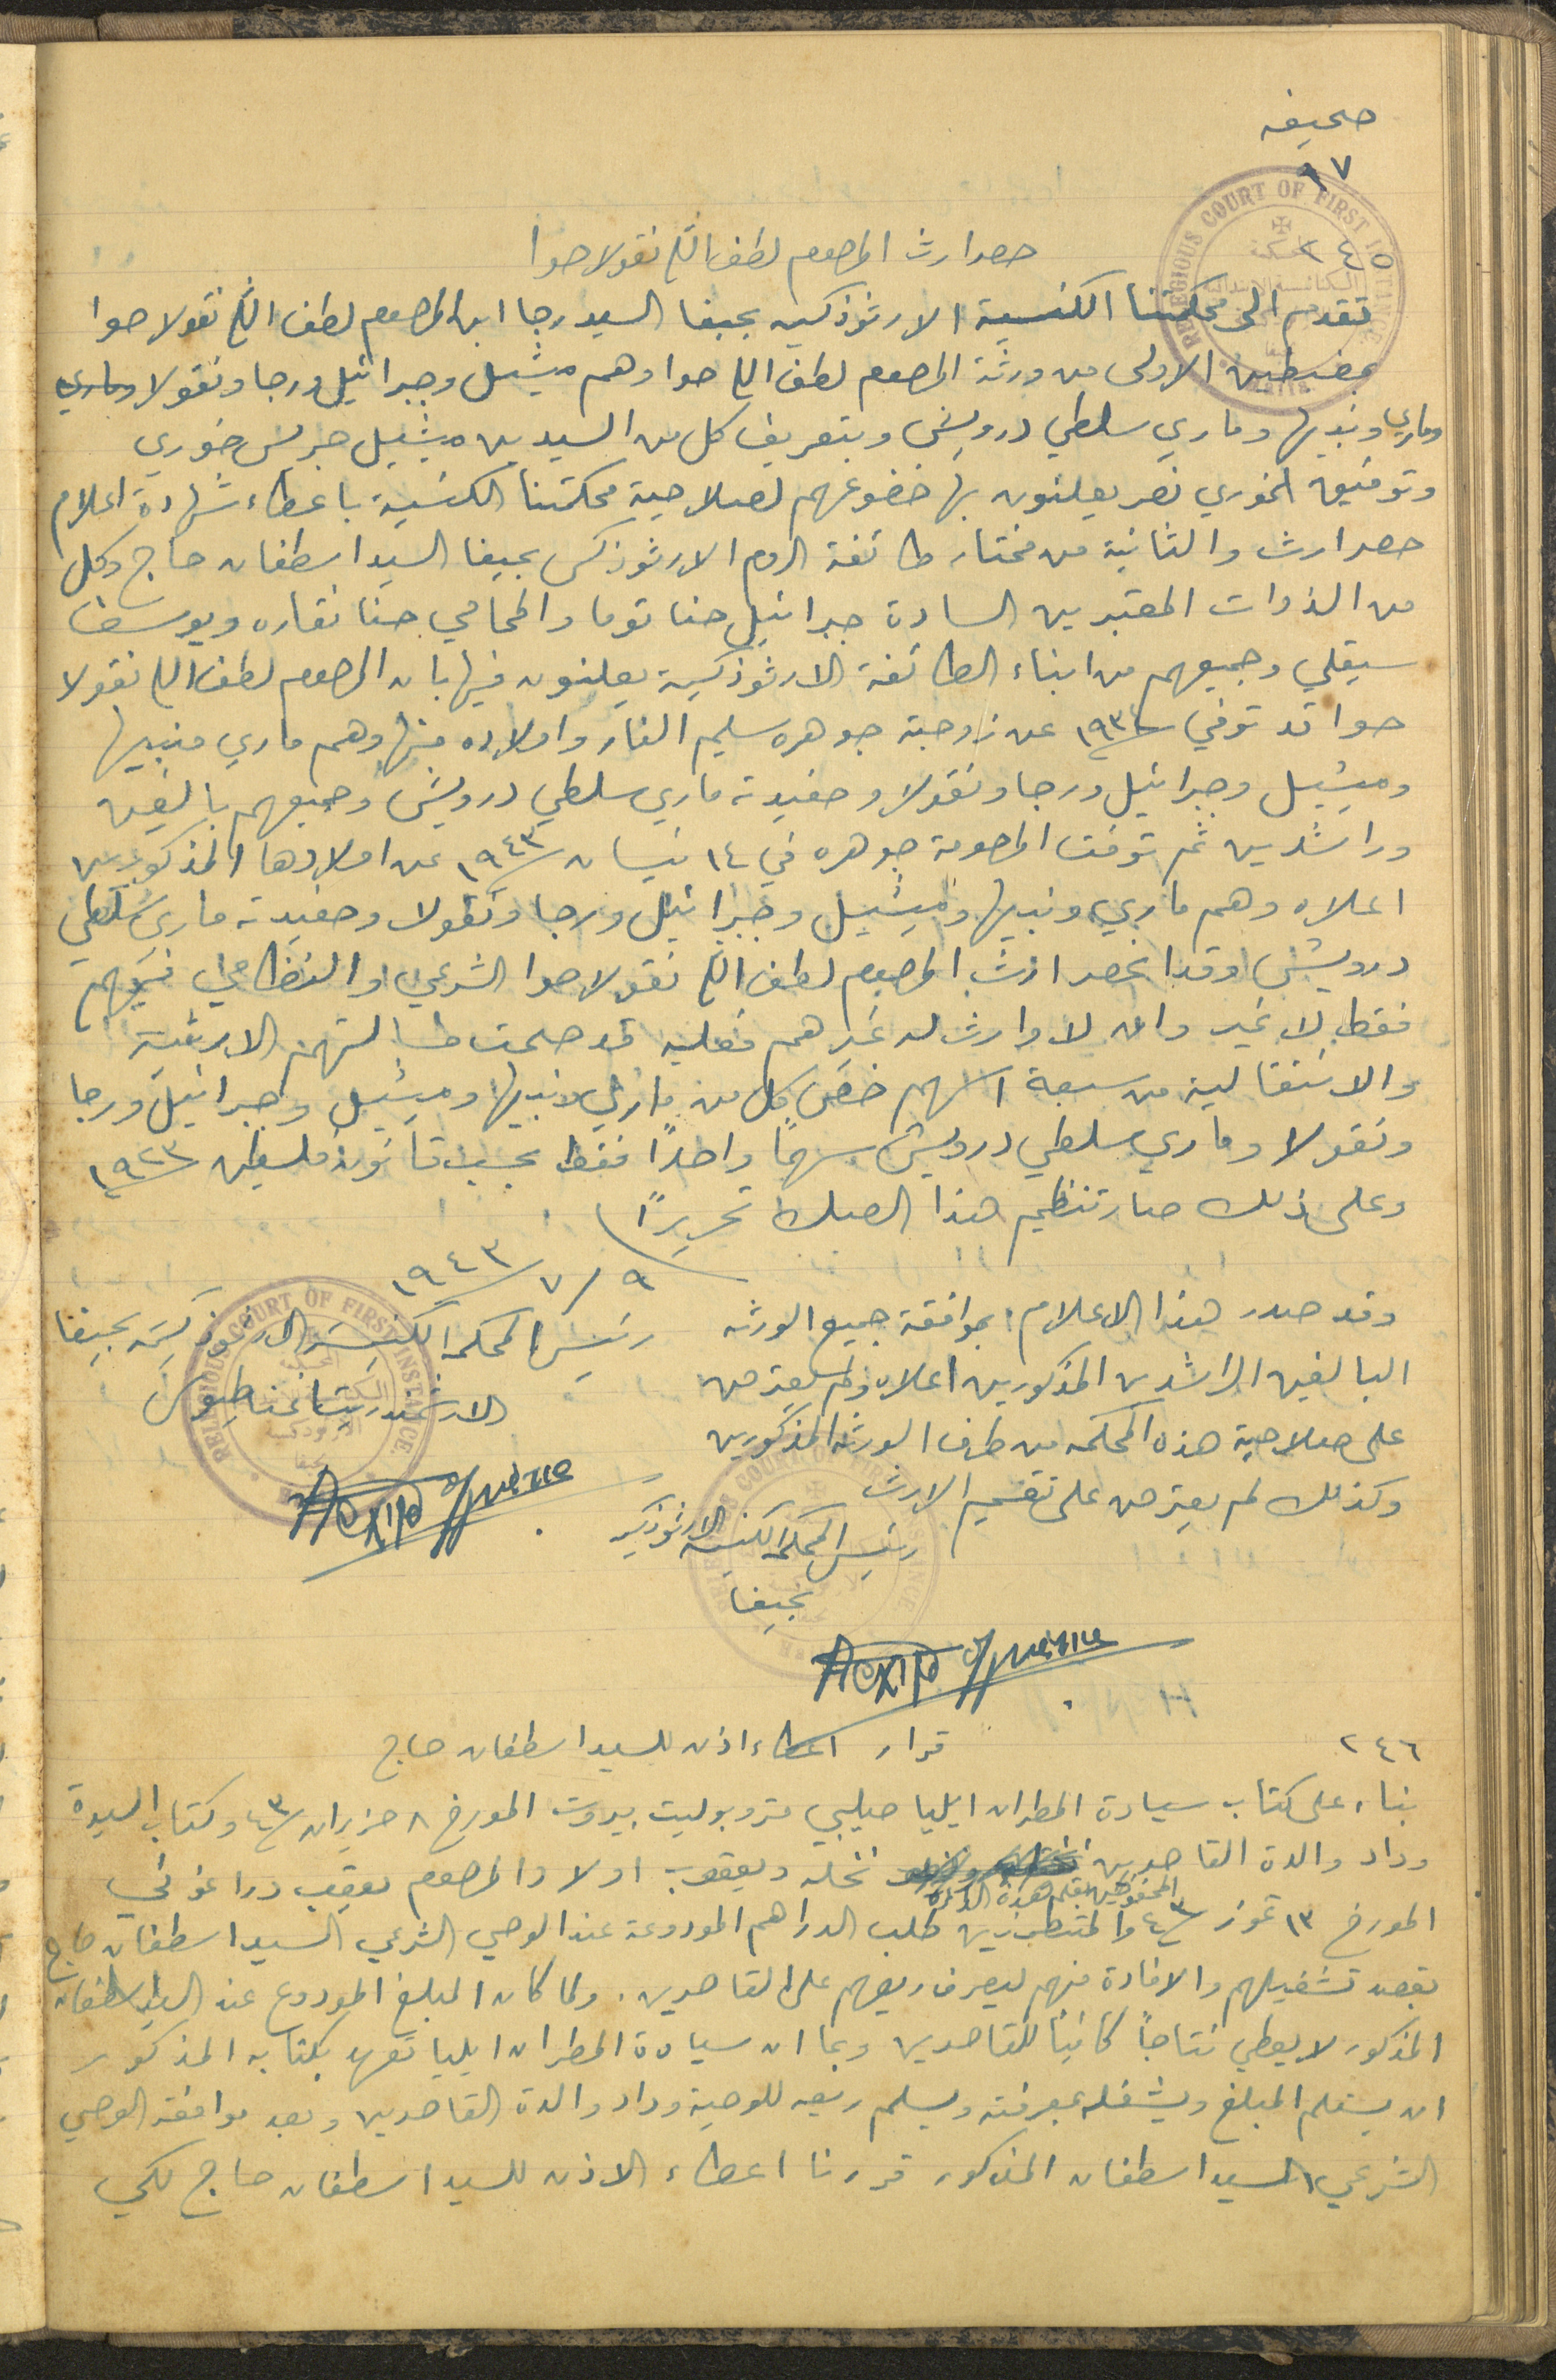 صحيفه
٩٧
RELIGIOUS COURT OF FIRST INSTANCE
٢٤٥
حصر ارث المرحوم لطف الله نقولا حوا
تقدم الى محكمتنا الكنسية الارثوذكسيه بحيفا السيد رجا ابن المرحوم لطف الله نقولا حوا
بمضبطين الاولى من ورثة المرحوم لطف الله حوا وهم ميشيل وجبرائيل ورجا ونقولا وماري
وماري ونبيها وماري سلطي درويش وبتعريف كل من السيدين ميشيل جريس خوري
وتوفيق الخوري نصر يعلنون بها خضوعهم لصلاحية محكمتنا الكنسية باعطاء شهادة اعلام
حصر ارث والثانية من مختار طائفة الروم الارثوذكس بحيفا السيد اسطفان حاج وكل
من الذوات المعتبرين السادة جبرائيل حنا توما والمحامي حنا نقاره ويوسف
سيقلي وجميعهم من ابناء الطائفة الارثوذكسية يعلنون فيها بان المرحوم لطف الله نقولا
حوا قد توفي سنة ١٩٣٤ عن زوجته جوهره سليم الفار واولاده منها وهم ماري ونبيها
وميشيل وجبرائيل ورجا ونقولا وحفيدته ماري سلطي درويش وجميعهم بالغين
وراشدين ثم توفت المرحومة جوهره في ١٤ نيسان سنة ١٩٤٣ عن اولادها المذكورين
اعلاه وهم ماري ونبيها وميشيل وجبرائيل ورجا ونقولا وحفيدته ماري سلطي
درويش وقد انحصر ارث المرحوم لطف الله نقولا حوا الشرعي والنظامي فيهم
فقط لا غير وان لا وارث له غيرهم فعليه قد صحت مسألتهم الارثية
والانتقالية من سبعة اسهم خص كل من ماري ونبيها وميشيل وجبرائيل ورجا
ونقولا وماري سلطي درويش سهمًا واحدًا فقط بحسب قانون فلسطين سنة ١٩٢٣
وعلى ذلك صار تنظيم هذا الصك تحريرًا
٩/٧ سنة ١٩٤٣
وقد صدر هذا الاعلام بموافقة جميع الورثه
البالغين الراشدين المذكورين اعلاه ولم يعترض
على صلاحية هذه المحكمه من طرف الورثه المذكورين
وكذلك لم يعترض على تقسيم الارث
رئيس المحكمه الكنسيه الارثوذكسيه بحيفا
الارشمندريت اغناطيوس
RELIGIOUS COURT OF FIRST INSTANCE
رئيس المحكمه الكنسيه الارثوذكسيه
بحيفا
٢٤٦
قرار اعطاء اذن للسيد اسطفان حاج
بناء على كتاب سيادة المطران ايليا صليبي متروبوليت بيروت المورخ ٨ حزيران سنة ٤٣ وكتاب السيدة
وداد والدة القاصرين نخله ويعقوب اولاد المرحوم يعقوب دراغوني
المحفوظين بقلم هذه الدائرة
المورخ ١٣ تموز سنة ٤٣ والمتضمنين طلب الدراهم المودوعة عند الوصي الشرعي السيد اسطفان حاج
بقصد تشغيلهم والافادة منهم ليصرف ريعهم على القاصرين. ولما كان المبلغ المودوع عند السيد اسطفان
المذكور لا يعطي نتاجاً كافياً للقاصرين وبما ان سيادة المطران ايليا تعهد بكتابه المذكور
ان يستلم المبلغ ويشغله بمعرفته ويسلم ريعه للوصية وداد والدة القاصرين وبعد موافقة الوصي
الشرعي السيد اسطفان المذكور قررنا اعطاء الاذن للسيد اسطفان حاج لكي